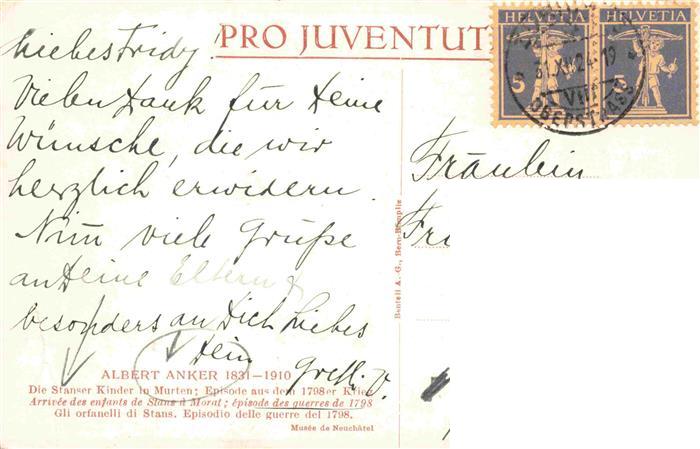 PRO JUVENTUT
Liebes Fridy
Vielen Dank für Deine
Wünsche, die wir
herzlich erwidern.
Nimm viele Grüße
an Deine Eltern &
besonders an Dich Liebes
Dein Gretli V.
ALBERT ANKER 1831—1910
Die Stanser Kinder in Murten; Episode aus dem 1798er Krieg
Arrivée des enfants de Stans à Morat; épisode des guerres de 1798
Gli orfanelli di Stans. Episodio delle guerre del 1798.
Musée de Neuchâtel
Benteli A.-G., Bern-Bümpliz
HELVETIA HELVETIA
5 5
31.XII.24-19
VIII
OBERSTRASS
Fräulein
Fri